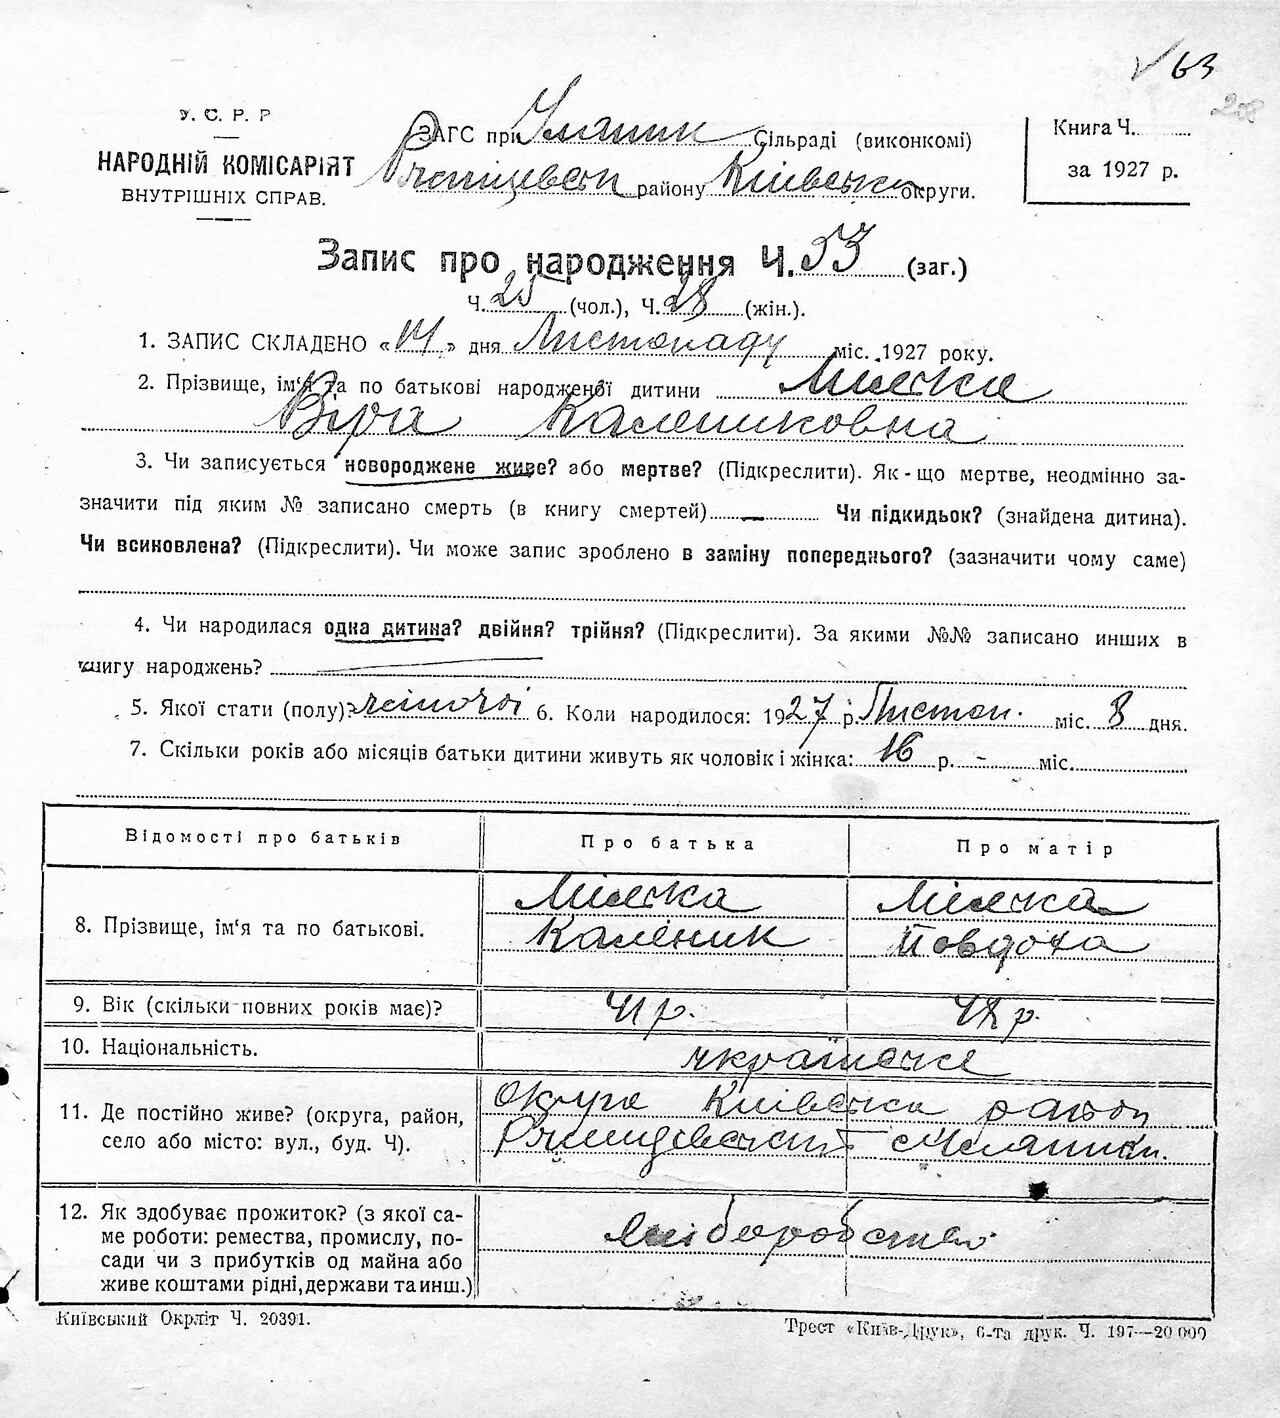 63
У. С. Р. Р
НАРОДНІЙ КОМІСАРІЯТ
ВНУТРІШНІХ СПРАВ.
ЗАГС при Сільраді (виконкомі)
району Київськ округи.
Книга Ч.
за 1927 р.
Запис про народження Ч. 53 (заг.)
Ч. 25 (чол.), Ч. 28 (жін.).
1. ЗАПИС СКЛАДЕНО «14» дня Листопаду міс. 1927 року.
2. Прізвище, ім‘я та по батькові народженої дитини
Віра Калениковна
3. Чи записується новороджене живе? або мертве? (Підкреслити). Як-що мертве, неодмінно за-
значити під яким № записано смерть (в книгу смертей) — Чи підкидьок? (знайдена дитина).
Чи всиновлена? (Підкреслити). Чи може запис зроблено в заміну попереднього? (зазначити чому саме)
4. Чи народилася одна дитина? двійня? трійня? (Підкреслити). За якими №№ записано инших в
книгу народжень?
5. Якої стати (полу)? жіночої 6. Коли народилося: 1927 р. Листоп. міс. 8 дня.
7. Скільки років або місяців батьки дитини живуть як чоловік і жінка: 16 р. - міс.
Відомості про батьків
Про батька
Про матір
8. Прізвище, ім‘я та по батькові.
Каленик
Човдоха
9. Вік (скільки повних років має)?
41 р.
42 р.
10. Національність.
українське
11. Де постійно живе? (округа, район,
село або місто: вул., буд. Ч).
Округа Київська район
12. Як здобуває прожиток? (з якої са-
ме роботи: ремества, промислу, по-
сади чи з прибутків од майна або
живе коштами рідні, держави та инш.)
хліборобство
Київський Окрліт Ч. 20391.
Трест «Київ-Друк», 6-та друк. Ч. 197—20 000